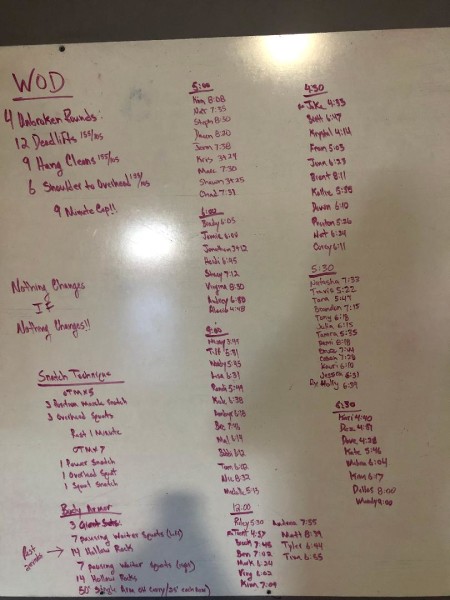 WOD
4 Unbroken Rounds:
12 Deadlifts 155/105
9 Hang Cleans 155/105
6 Shoulder to Overhead 155/105
9 Minute Cap!!
Nothing Changes
IF
Nothing Changes!!
Snatch Technique
OTMx5
3 Position Muscle Snatch
3 Overhead Squats
Rest 1 Minute
OTMx7
1 Power Snatch
1 Overhead Squat
1 Squat Snatch
Body Armor
3 Giant Sets:
7 pausing Waiter Squats
14 Hollow Rocks
7 pausing Waiter Squats
14 Hollow Rocks
50' Single Arm OH Carry/25' each arm
Rest
5:00
Kim 8:08
Nat 7:35
Steph 8:50
Dawn 8:20
Jenn 7:38
Kris 3+29
Marc 7:30
Shawn 3+25
Chad 7:31
6:00
Brady 6:05
Jamie 6:00
Jonathan 3+12
Heidi 6:45
Stacy 7:12
Virginia 8:30
Aubrey 6:50
Alexis 4:48
9:00
Missy 5:49
Tiff 5:31
Molly 5:45
Lisa 6:31
Randi 5:49
Kale 6:38
6:18
Bec 7:46
Mel 6:19
Bobbi 6:12
Tom 6:02
Nic 8:32
Michelle 5:13
12:00
Riley 5:20
Tent 4:57
7:45
Ben 7:02
Mark 6:24
6:02
Kenn 7:04
Andrew 7:55
Matt 8:39
Tyler 6:44
Tree 6:55
4:30
Jake 4:33
Scott 6:47
Krystal 4:14
Fran 5:03
June 6:23
Brent 8:11
Kallie 5:55
Devon 6:10
Preston 5:26
Nat 6:24
Corey 6:11
5:30
Natasha 7:33
Travis 5:22
Tara 5:47
Branden 7:15
Tony 6:18
Julia 6:15
Tamara 5:35
Demi 8:18
Bruce 7:44
Coban 7:28
Kauri 6:10
Jessica 6:31
Dr. Molly 6:39
6:30
Kari 4:40
Roz 4:51
Dave 4:28
Kate 5:46
Melissa 6:04
Kim 6:17
Dallas 8:00
Wendy 9:00